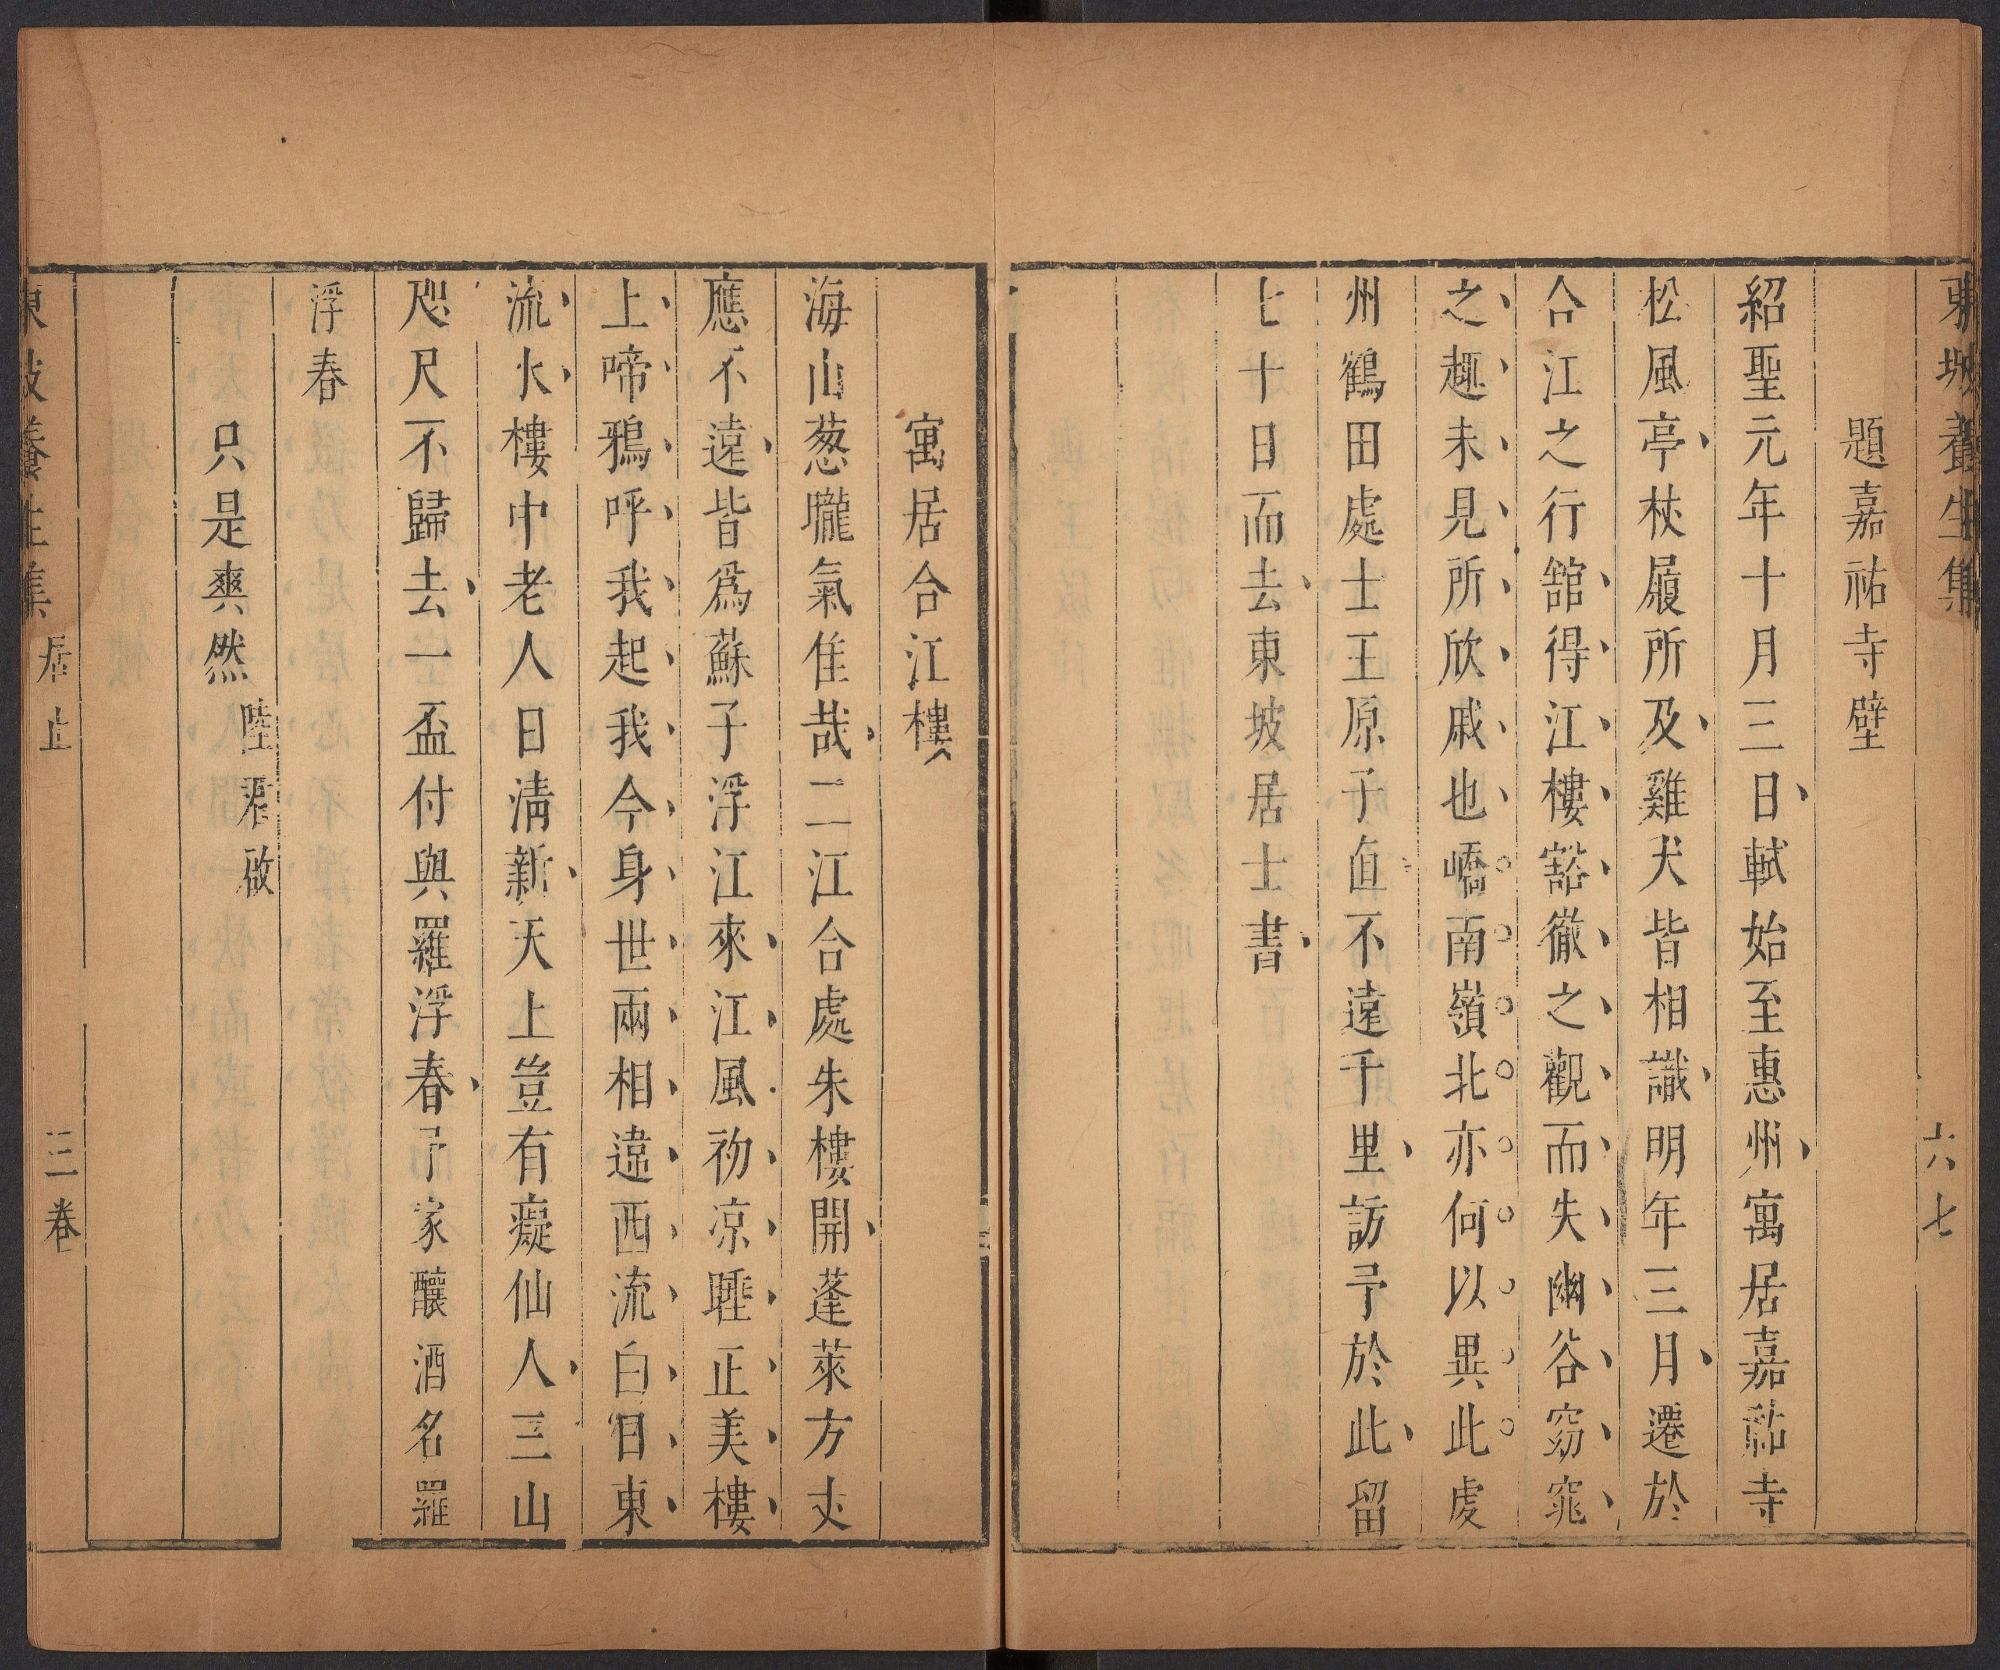 東坡養生集
六七
題嘉祐寺壁
紹聖元年十月三日軾始至惠州寓居嘉祐寺
松風亭杖履所及雞犬皆相識明年三月遷於
合江之行舘得江樓豁徹之觀而失幽谷窈窕
之趣未見所欣戚也嶠南嶺北亦何以異此處
州鶴田處士王原子直不遠千里訪予於此留
七十日而去東坡居士書
寓居合江樓
海山葱曨氣佳哉二江合處朱樓開蓬萊方丈
應不遠皆爲蘇子浮江來江風初凉睡正美樓
上啼鴉呼我起我今身世兩相違西流白日東
流水樓中老人日淸新天上豈有癡仙人三山
咫尺不歸去一盃付與羅浮春予家釀酒名羅
浮春
只是爽然 陸君啟
東坡養生集 居止 三卷